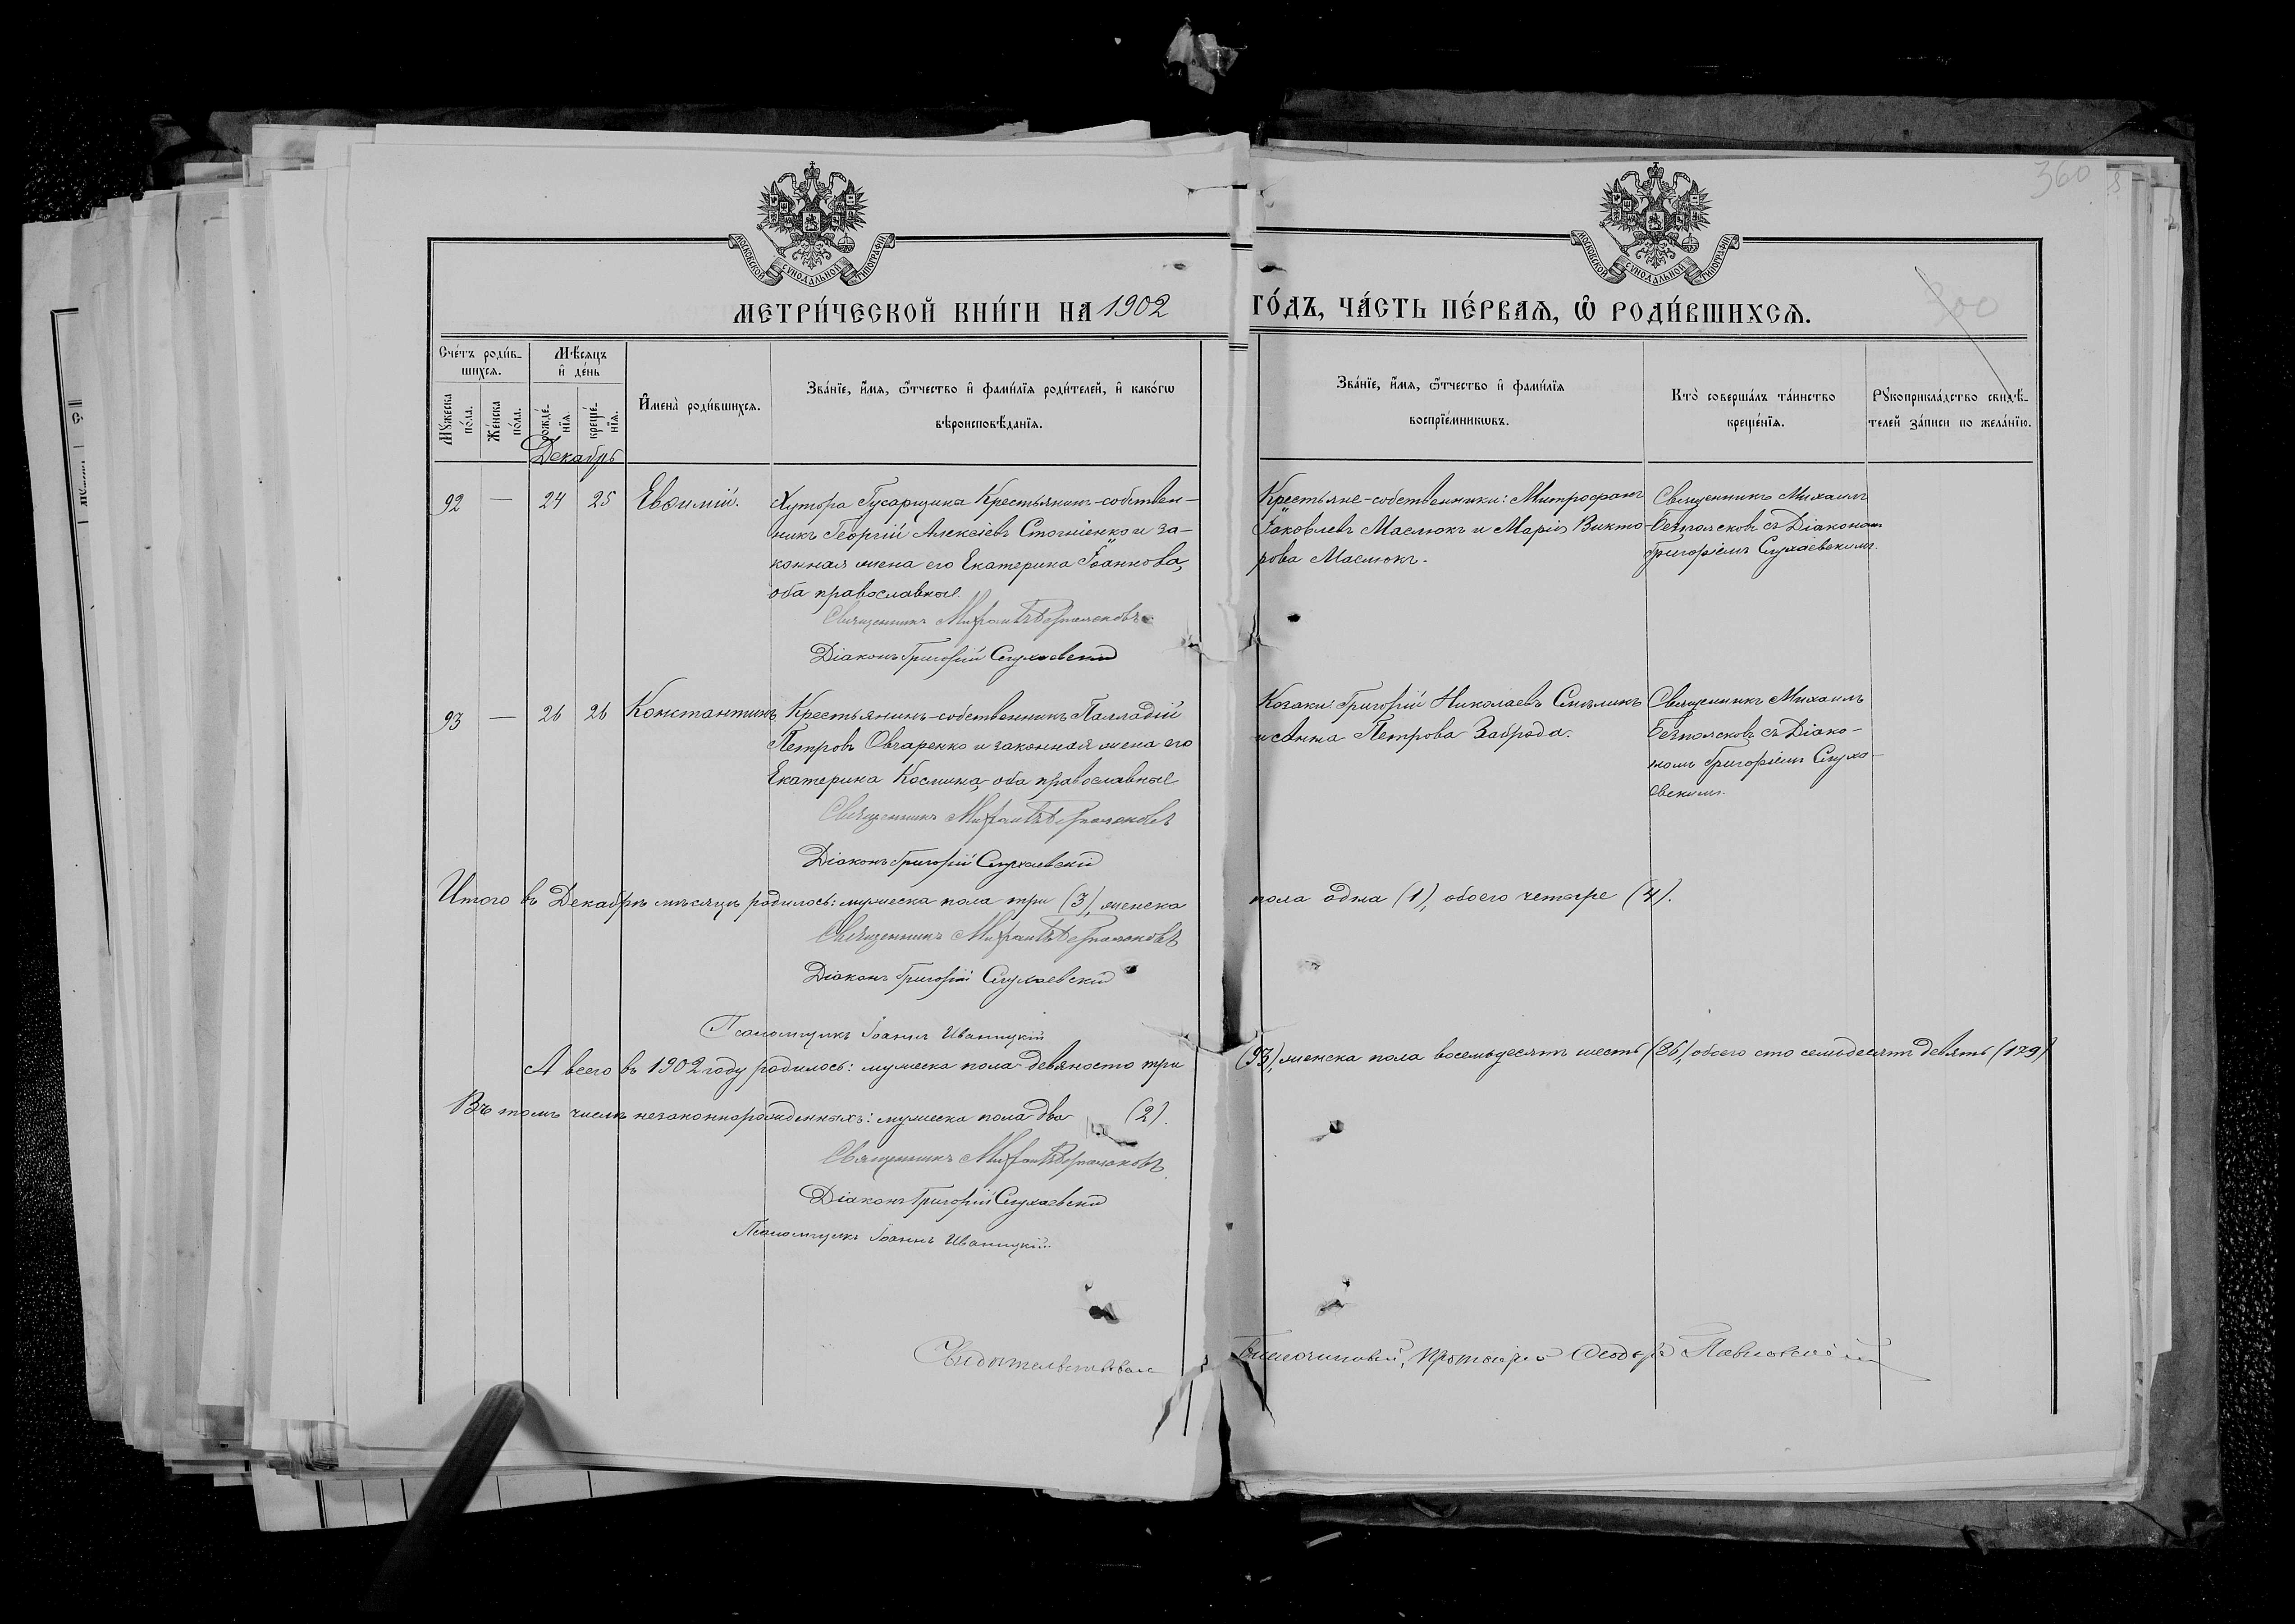 360
МОСКОВСКОЙ СѴНОДАЛЬНОЙ ТИПОГРАФІИ
МОСКОВСКОЙ СѴНОДАЛЬНОЙ ТИПОГРАФІИ
МЕТРИ́ЧЕСКОЙ КНИ́ГИ НА 1902
ГО́ДЪ, ЧА́СТЬ ПЕ́РВАѦ, Ѽ РОДИ́ВШИХСѦ.
300
Счетъ роди́в-
шихсѧ.
Мꙋжеска по́ла.
Же́нска по́ла.
Мѣ́сѧцъ
и҆ де́нь
рожде́-
нїѧ.
креще́-
нїѧ.
И҆мена̀ роди́вшихсѧ.
Зва́нїе, и҆́мѧ, ѻ҆́тчество и҆ фами́лїѧ роди́телей, и҆ како́гѡ
вѣроисповѣ́данїѧ.
Зва́нїе, и҆́мѧ, ѻ҆́тчество и҆ фами́лїѧ
воспрїе́мникѡвъ.
Кто̀ соверша́лъ та́инство
креще́нїѧ.
Рꙋкоприкла́дство свидѣ́-
телей за́писи по жела́нїю.
Декабрь
92 — 24 25 Евѳимій.
Хутора Гусарщина Крестьянинъ-собствен-
никъ Георгій Алексіевъ Стогніенко и за-
конная жена его Екатерина Іоаннова,
оба православные.
Священникъ Михаилъ Безпалсковъ
Діаконъ Григорій Слухаевскій
Крестьяне-собственники: Митрофанъ
Іаковлевъ Маслюкъ и Марія Викто-
рова Маслюкъ.
Священникъ Михаилъ
съ Діакономъ
Григоріемъ Слухаевскимъ.
93 — 26 26 Константинъ
Крестьянинъ-собственникъ Палладій
Петровъ Овчаренко и законная жена его
Екатерина Космина, оба православные
Священникъ Михаилъ
Діаконъ Григорій Слухаевскій
Козаки: Григорій Николаевъ
и Анна Петрова Заброда.
Священникъ Михаилъ
съ Діако-
номъ Григоріемъ Слуха-
евскимъ.
Итого въ Декабрѣ мѣсяцѣ родилось: мужеска пола три (3), женска
пола одна (1), обоего четыре (4).
Священникъ Михаилъ
Діаконъ Григорій Слухаевскій
Псаломщикъ Іоаннъ Иваницкій
А всего въ 1902 году родилось: мужеска пола девяносто три
(93), женска пола восемьдесятъ шесть (86), обоего сто семьдесятъ девять (179)
Въ томъ числѣ незаконнорожденныхъ: мужеска пола два (2).
Священникъ Михаилъ
Діаконъ Григорій Слухаевскій
Псаломщикъ Іоаннъ Иваницкій
Свидѣтельствовалъ
Благочинный, Протоіерей Ѳеодоръ Павловскій